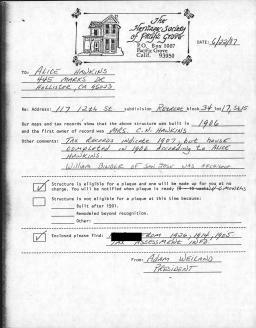 The
Heritage Society
of Pacific Grove
P.O. Box 1007
Pacific Grove
Calif. 93950
DATE: 6/22/87
TO: ALICE HAWKINS
445 MARKS DR
HOLLISTER, CA 95023
Re: Address: 117 12th St subdivision Retreat block 34 lot 17, 5615
Our maps and tax records show that the above structure was built in 1906
and the first owner of record was MRS. C.N. HAWKINS
Other comments: TAX RECORDS INDICATE 1907, BUT HOUSE
COMPLETED IN 1906 ACCORDING TO ALICE
HAWKINS.
WILLIAM BINDER OF SAN JOSE WAS
Structure is eligible for a plaque and one will be made up for you at no
charge. You will be notified when plaque is ready
Structure is not eligible for a plaque at this time because:
Built after 1901.
Remodeled beyond recognition.
Other:
Enclosed please find: FROM 1926, 1914, 1905
TAX ASSESSMENT INFO.
From: ADAM WEILAND
PRESIDENT